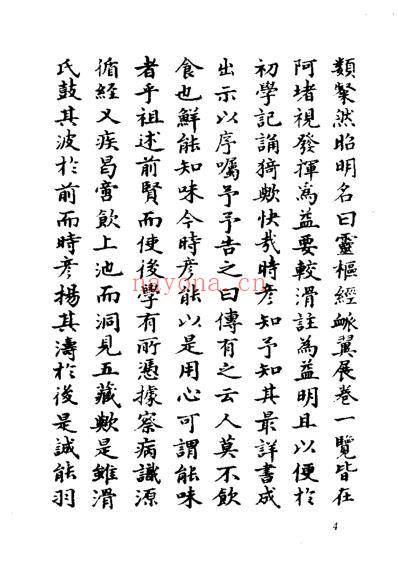 類縈然昭明名曰靈樞經脈翼展卷一覽皆在
阿堵視發揮爲益要較滑註為益明且以便於
初學記誦猗歟快哉時彥知予知其最詳書成
出示以序囑予予告之曰傳有之云人莫不飲
食也鮮能知味今時彥能以是用心可謂能味
者乎祖述前賢而使後學有所憑據察病識源
循經又疾曷啻飲上池而洞見五藏歟是雖滑
氏鼓其波於前而時彥揚其濤於後是誠能羽
nayona.cn
4